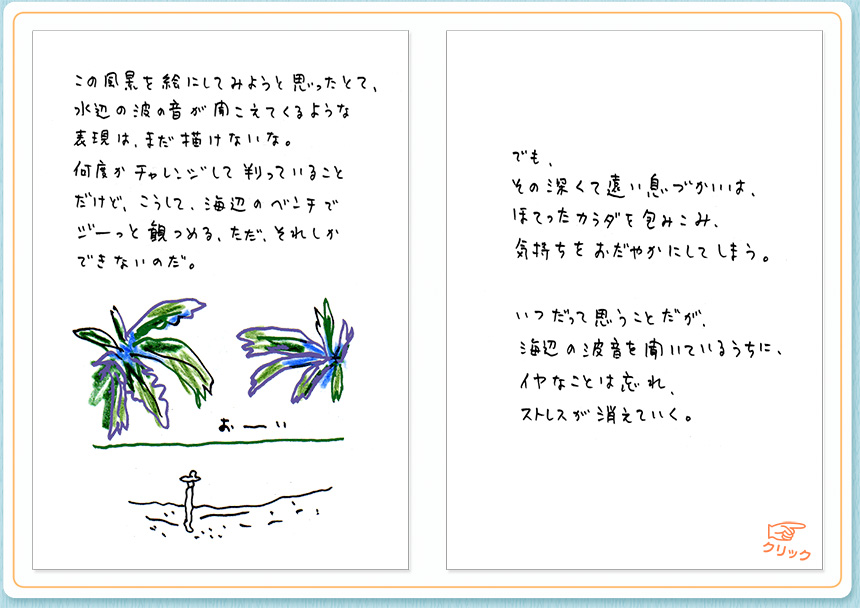 この風景を絵にしてみようと思ったとて、
水辺の波の音が聞こえてくるような
表現は、まだ描けないな。
何度かチャレンジして判っていること
だけど、こうして、海辺のベンチで
ジーっと観つめる、ただ、それしか
できないのだ。
おーい
でも、
その深くて遠い息づかいは、
ほてったカラダを包みこみ、
気持ちをおだやかにしてしまう。
いつだって思うことだが、
海辺の波音を聞いているうちに、
イヤなことは忘れ、
ストレスが消えていく。
クリック